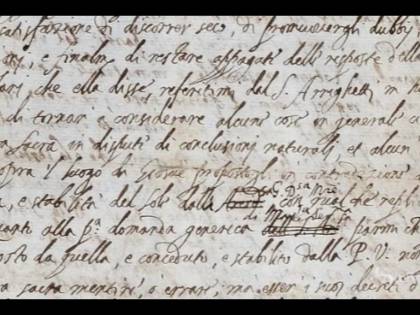 satisfazione di discorrer seco, di promuovergli dubbi,
oni, e finalm. di restare appagate delle risposte della
lari, che ella disse, referitimi dal S. Arrighetti, m
di tornar a considerare alcune cose in generale c
ra sacra in dispute di conclusioni naturali, et alcun
sopra il luogo di Giosue propostogli in contradizione
a, e stabilità del Sole dalla con qualche repli
uanto alla pa. domanda generica di parmi ch
osto da quella, e conceduto, e stabilito dalla P. V. non
ra sacra mentire, o errare, ma esser i suoi decreti d